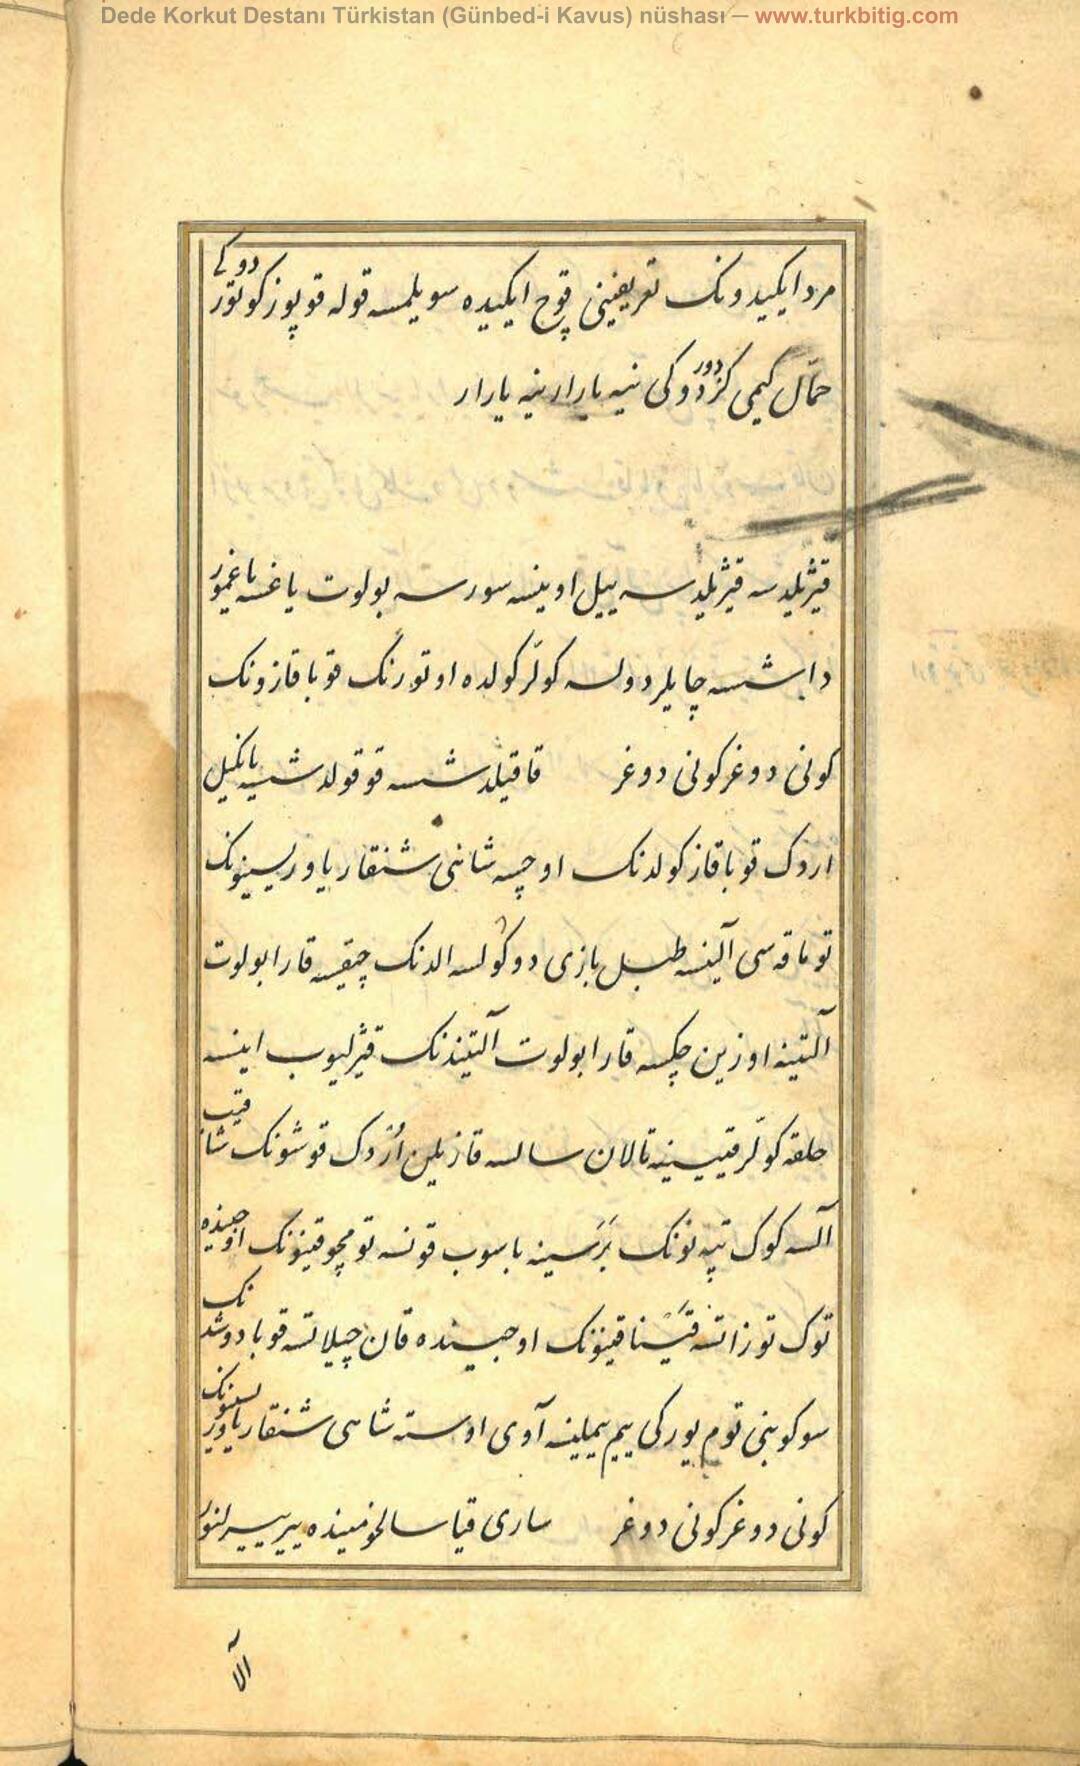 Dede Korkut Destanı Türkistan (Günbed-i Kavus) nüshası — www.turkbitig.com
مرد ایکیدونک تعریفینی قوچ ایکیده سویلمسه قوله قوپوز کوتوردوکی
حمّال کیمی کزدوردوکی نیه یارار نیه یارار
قیژیلدسه قیژیلدسه ییل اوینسه سورسه بولوت یاغسه یاغمور
داشسه چایلر دولسه کولّر کولده اوتورنک قوبا قازونک
کونی دوغر کونی دوغر قاقیلدشسه قوقولدشسه یانکیل
اردک قوبا قاز کولدنک اوچسه شاهی شنقار یاوریسینونک
توماقه سی آلینسه طبل بازی دوکولسه الدنک چیقسه قارا بولوت
آلتینه اوزین چکسه قارا بولوت آلتیندنک قیژلیوب اینسه
حلقه کولّر قتیینه تالان سالسه قازیلین اُرْدک قوشونک شاقیب
آلسه کوک تپه نونک بَرَسینه باسوب قونسه تومچوقینونک اوجینده
توک توزاتسه قیناقینونک اوجینده قان چیلاتسه قوبا دوشنک
سوکوبنی توم یورکی ییم ییملینه آوی اوسته شاهی شنقار یاوریسینونک
کونی دوغر کونی دوغر ساری قیا سالخومینده
الآ